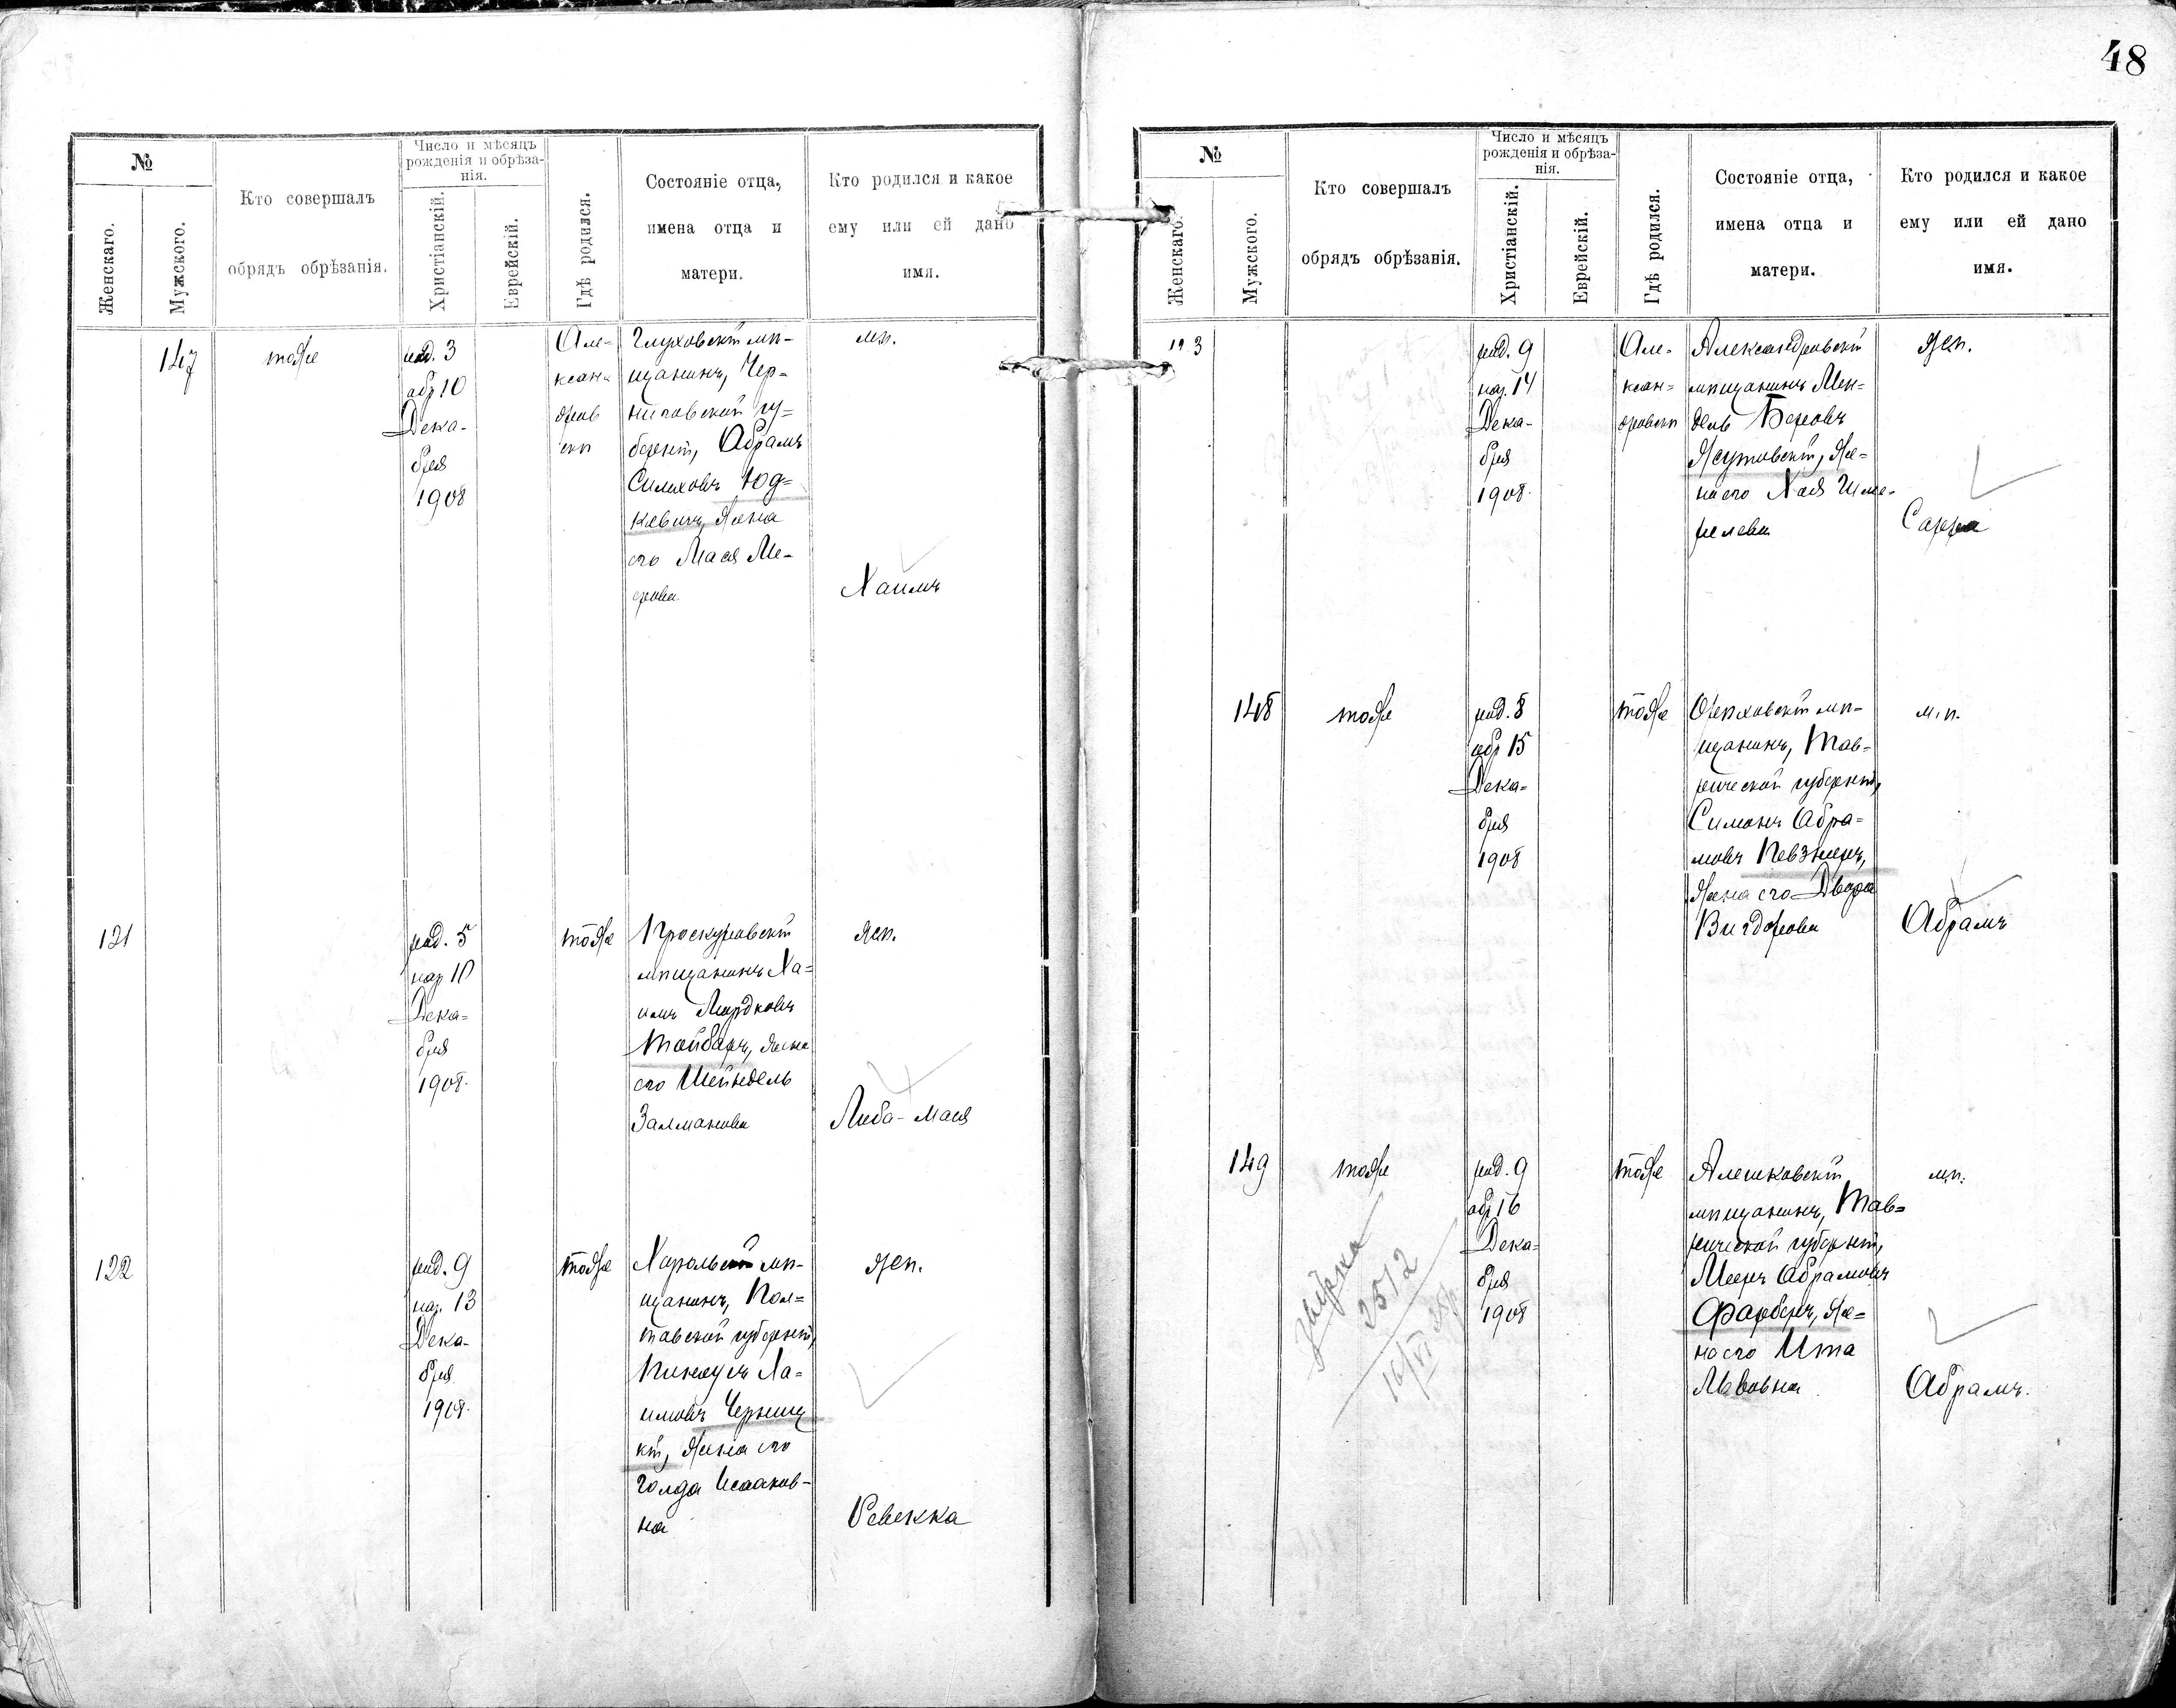 48
№
Женскаго.
Мужского.
Кто совершалъ
обрядъ обрѣзанія.
Число и мѣсяцъ
рожденія и обрѣза-
нія.
Христіанскій.
Еврейскій.
Гдѣ родился.
Состояніе отца,
имена отца и
матери.
Кто родился и какое
ему или ей дано
имя.
147
тоже
род. 3
обр 10
Дека-
бря
1908
Але-
ксан-
дров
скѣ
Глуховскій мѣ-
щанинъ, Чер-
ниговской гу-
берніи, Абрамъ
Симховъ Юд-
кевичъ, жена
его Мася Ме-
ерова
м.п.
Хаимъ
121
род. 5
нар 10
Дека-
бря
1908.
тоже
Проскуровскій
мѣщанинъ Ха-
имъ Мордковъ
Тойбаръ, жена
его Шейндель
Залманова
жен.
Либа-Мася
122
род. 9
нар. 13
Дека-
бря
1908.
тоже
Хорольскій мѣ-
щанинъ, Пол-
тавской губерніи,
Пинхусъ Ха-
имовъ Черниц
кій, жена его
Голда Исааков-
на
жен.
Ревекка
№
Женскаго.
Мужского.
Кто совершалъ
обрядъ обрѣзанія.
Число и мѣсяцъ
рожденія и обрѣза-
нія.
Христіанскій.
Еврейскій.
Гдѣ родился.
Состояніе отца,
имена отца и
матери.
Кто родился и какое
ему или ей дано
имя.
123
род. 9
нар. 14
Дека-
бря
1908.
Але-
ксан-
дровскѣ
Александровскій
мѣщанинъ Мен-
дель Беровъ
Ясутовскій, же-
на его Хая Шме-
релева
жен.
Сарра
148
тоже
род. 8
обр 15
Дека-
бря
1908
тоже
Орѣховскій мѣ-
щанинъ, Тав-
рической губерніи,
Симонъ Абра-
мовъ Певзнеръ,
жена его Двора
Вигдорова
м.п.
Абрамъ
149
тоже
род. 9
обр. 16
Дека-
бря
1908
тоже
Алешковскій
мѣщанинъ, Тав-
рической губерніи,
Мееръ Абрамовъ
Фарберъ, же-
на его Ита
Львовна
м.п.
Абрамъ.
2512
16/VI